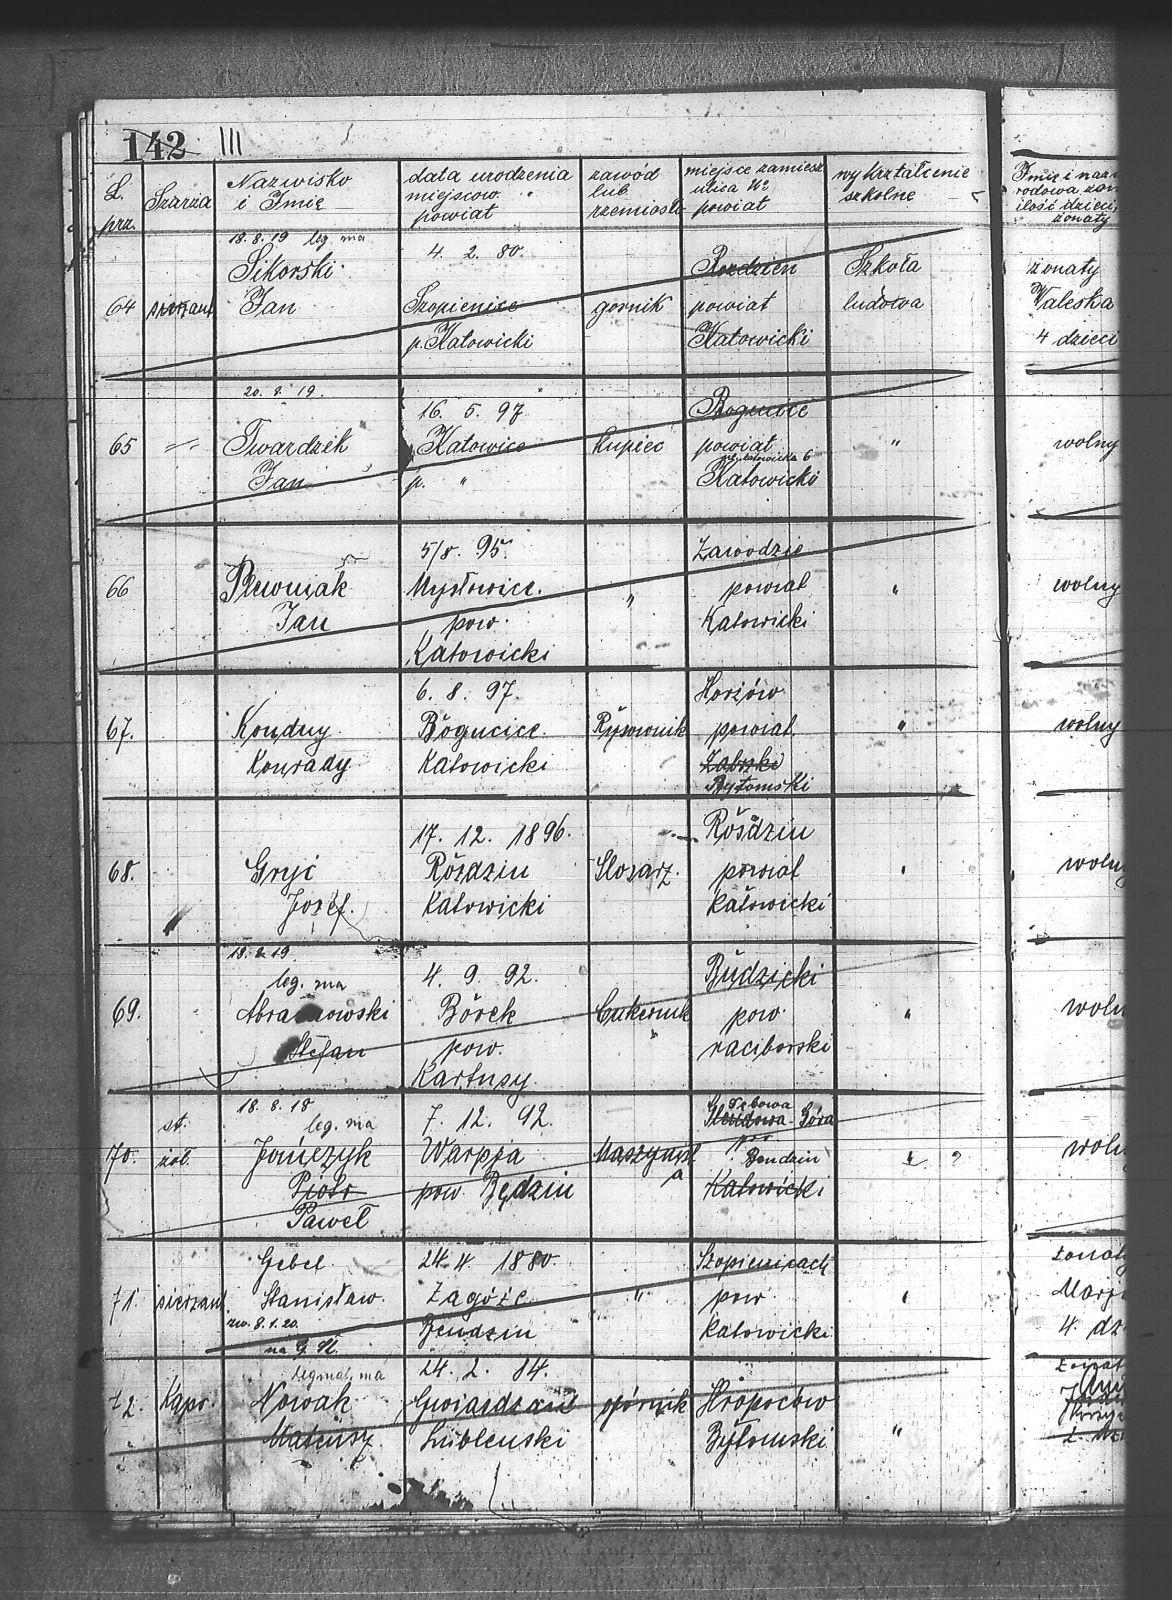 142 III
L. prz.
Szarża
Nazwisko i Imię
data urodzenia miejscow. powiat
zawód lub rzemiosło
miejsce zamiesz ulica № powiat
wykształcenie szkolne
Imię i naz
rodowa żon
ilość dzieci,
żonaty
18.8.19 leg. ma
Sikorski 4. 2. 80. Rozdzień Szkoła żonaty
64 sierżant Jan Szopienice górnik powiat ludowa Waleska
p. Katowicki Katowicki 4 dzieci
20. 8. 19.
16. 5. 97 Bogucice
65 " Twardzik Katowice kupiec powiat " wolny
ul. Katowicka 6
Jan p. " Katowicki
5/8. 95. Zawodzie
66 Plewniak Mysłowice. " powiat " wolny
Jan pow. Katowicki
Katowicki
6. 8. 97. Horzów
67. Kondny Bogucice Rysownik powiat " wolny
Konrady Katowicki Zabrski
Bytomski
17. 12. 1896. Rosdzin
68. Gryc Rosdzin Slosarz. powiat " woln
Jozef. Katowicki Katowicki
18. 8. 19
leg. ma 4. 9. 92. Budzicki
69. Borek Cukiernik pow. " woln
Stefan pow. raciborski
Kartusy
18. 8. 18
st. leg. ma 7. 12. 92. Góra
70. żoł. Jończyk Warpja Maszynist " woln
a Bendzin
Piotr pow. Będzin Katowicki
Paweł
Gebel 24. 4. 1880. Szopienicach żonaty
71. sierżant. Stanisław. Zagóże " pow " Marj
zw. 8.1.20. Bendzin Katowicki 4. dz
na G. Śl.
legmat. ma 24. 2. 84.
72. Kapr. Nowak górnik Hropoczów
Mateusz Lublenski Bytomski "